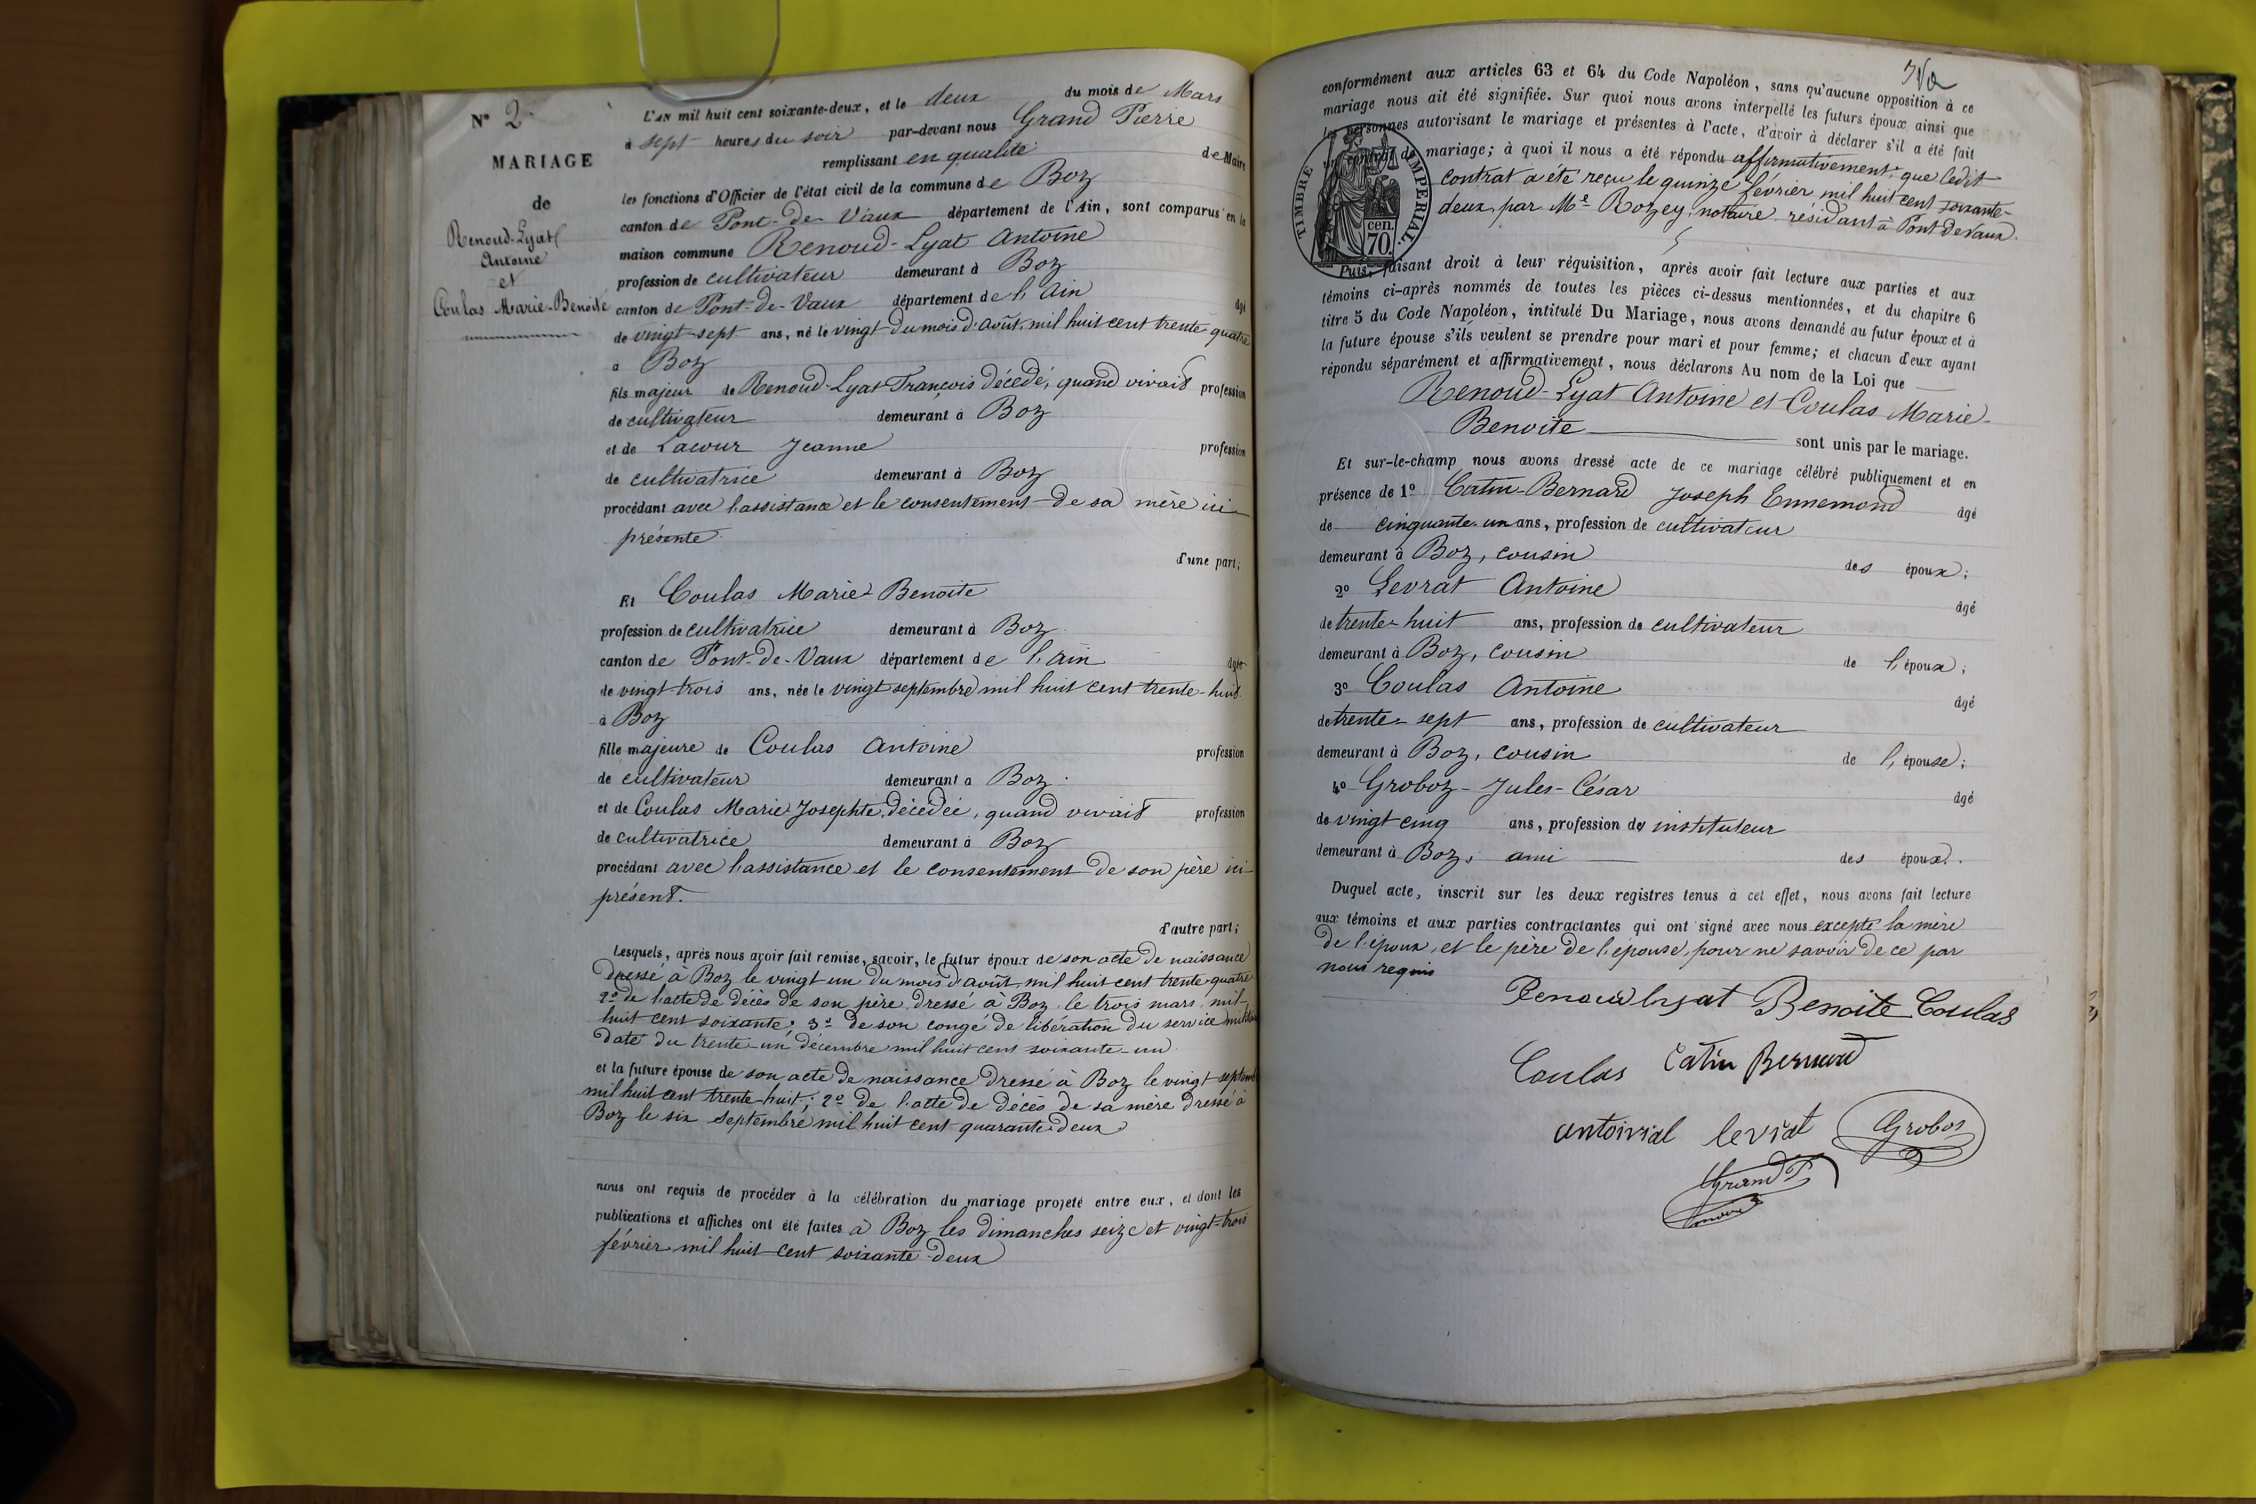 N° 2
MARIAGE
de
Renoud-Lyat
Antoine
et
Coulas Marie-Benoite
L'AN mil huit cent soixante-deux, et le deux du mois de Mars
à sept heures du soir par-devant nous Grand Pierre
remplissant en qualité de Maire
les fonctions d'Officier de l'état civil de la commune de Boz
canton de Pont-de-Vaux département de l'Ain, sont comparus en la
maison commune Renoud-Lyat Antoine
profession de cultivateur demeurant à Boz
canton de Pont-de-Vaux département de l'Ain âgé
de vingt-sept ans, né le vingt du mois d'août mil huit cent trente quatre
à Boz
fils majeur de Renoud-Lyat François décédé, quand vivait profession
de cultivateur demeurant à Boz
et de Lacour Jeanne profession
de cultivatrice demeurant à Boz
procédant avec l'assistance et le consentement de sa mère ici
présente
d'une part;
Et Coulas Marie-Benoite
profession de cultivatrice demeurant à Boz
canton de Pont-de-Vaux département de l'Ain âgée
de vingt trois ans, née le vingt septembre mil huit cent trente-huit
à Boz
fille majeure de Coulas Antoine profession
de cultivateur demeurant à Boz
et de Coulas Marie Josephte, décédée, quand vivait profession
de cultivatrice demeurant à Boz
procédant avec l'assistance et le consentement de son père ici
présent.
d'autre part;
Lesquels, après nous avoir fait remise, savoir, le futur époux de son acte de naissance
dressé à Boz le vingt un du mois d'août mil huit cent trente quatre
2° de l'acte de décès de son père dressé à Boz le trois mars mil
huit cent soixante; 3° de son congé de libération du service militaire
daté du trente-un décembre mil huit cent soixante-un
et la future épouse de son acte de naissance dressé à Boz le vingt septembre
mil huit cent trente-huit; 2° de l'acte de décès de sa mère dressé à
Boz le six septembre mil huit cent quarante deux
nous ont requis de procéder à la célébration du mariage projeté entre eux, et dont les
publications et affiches ont été faites à Boz les dimanches seize et vingt-trois
février mil huit cent soixante-deux
conformément aux articles 63 et 64 du Code Napoléon, sans qu'aucune opposition à ce
mariage nous ait été signifiée. Sur quoi nous avons interpellé les futurs époux ainsi que
les personnes autorisant le mariage et présentes à l'acte, d'avoir à déclarer s'il a été fait
un contrat de mariage; à quoi il nous a été répondu affirmativement; que ledit
contrat a été reçu le quinze février mil huit cent soixante-
deux, par Me Rozey, notaire résidant à Pont de Vaux.
TIMBRE IMPERIAL.
cen.
70.
Puis, faisant droit à leur réquisition, après avoir fait lecture aux parties et aux
témoins ci-après nommés de toutes les pièces ci-dessus mentionnées, et du chapitre 6
titre 5 du Code Napoléon, intitulé Du Mariage, nous avons demandé au futur époux et à
la future épouse s'ils veulent se prendre pour mari et pour femme; et chacun d'eux ayant
répondu séparément et affirmativement, nous déclarons Au nom de la Loi que
Renoud-Lyat Antoine et Coulas Marie-
Benoite sont unis par le mariage.
Et sur-le-champ nous avons dressé acte de ce mariage célébré publiquement et en
présence de 1° Catin-Bernard Joseph Ennemond âgé
de cinquante-un ans, profession de cultivateur
demeurant à Boz, cousin des époux;
2° Levrat Antoine âgé
de trente-huit ans, profession de cultivateur
demeurant à Boz, cousin de l'époux;
3° Coulas Antoine âgé
de trente-sept ans, profession de cultivateur
demeurant à Boz, cousin de l'épouse;
4° Groboz-Jules-César âgé
de vingt cinq ans, profession de instituteur
demeurant à Boz, ami des époux.
Duquel acte, inscrit sur les deux registres tenus à cet effet, nous avons fait lecture
aux témoins et aux parties contractantes qui ont signé avec nous excepté la mère
de l'époux, et le père de l'épouse, pour ne savoir de ce par
nous requis
Renoud lyat Benoite Coulas
Coulas Catin Bernard
levrat Groboz
Grand P